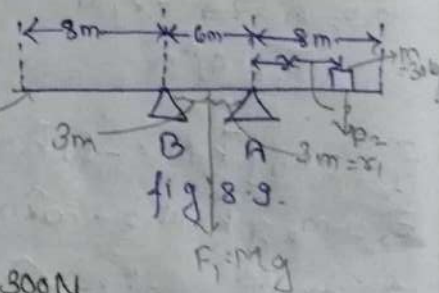 8m 6m 8m
x m
3m B A 3m = r₁
fig 8.9.
F₁ = Mg
300N